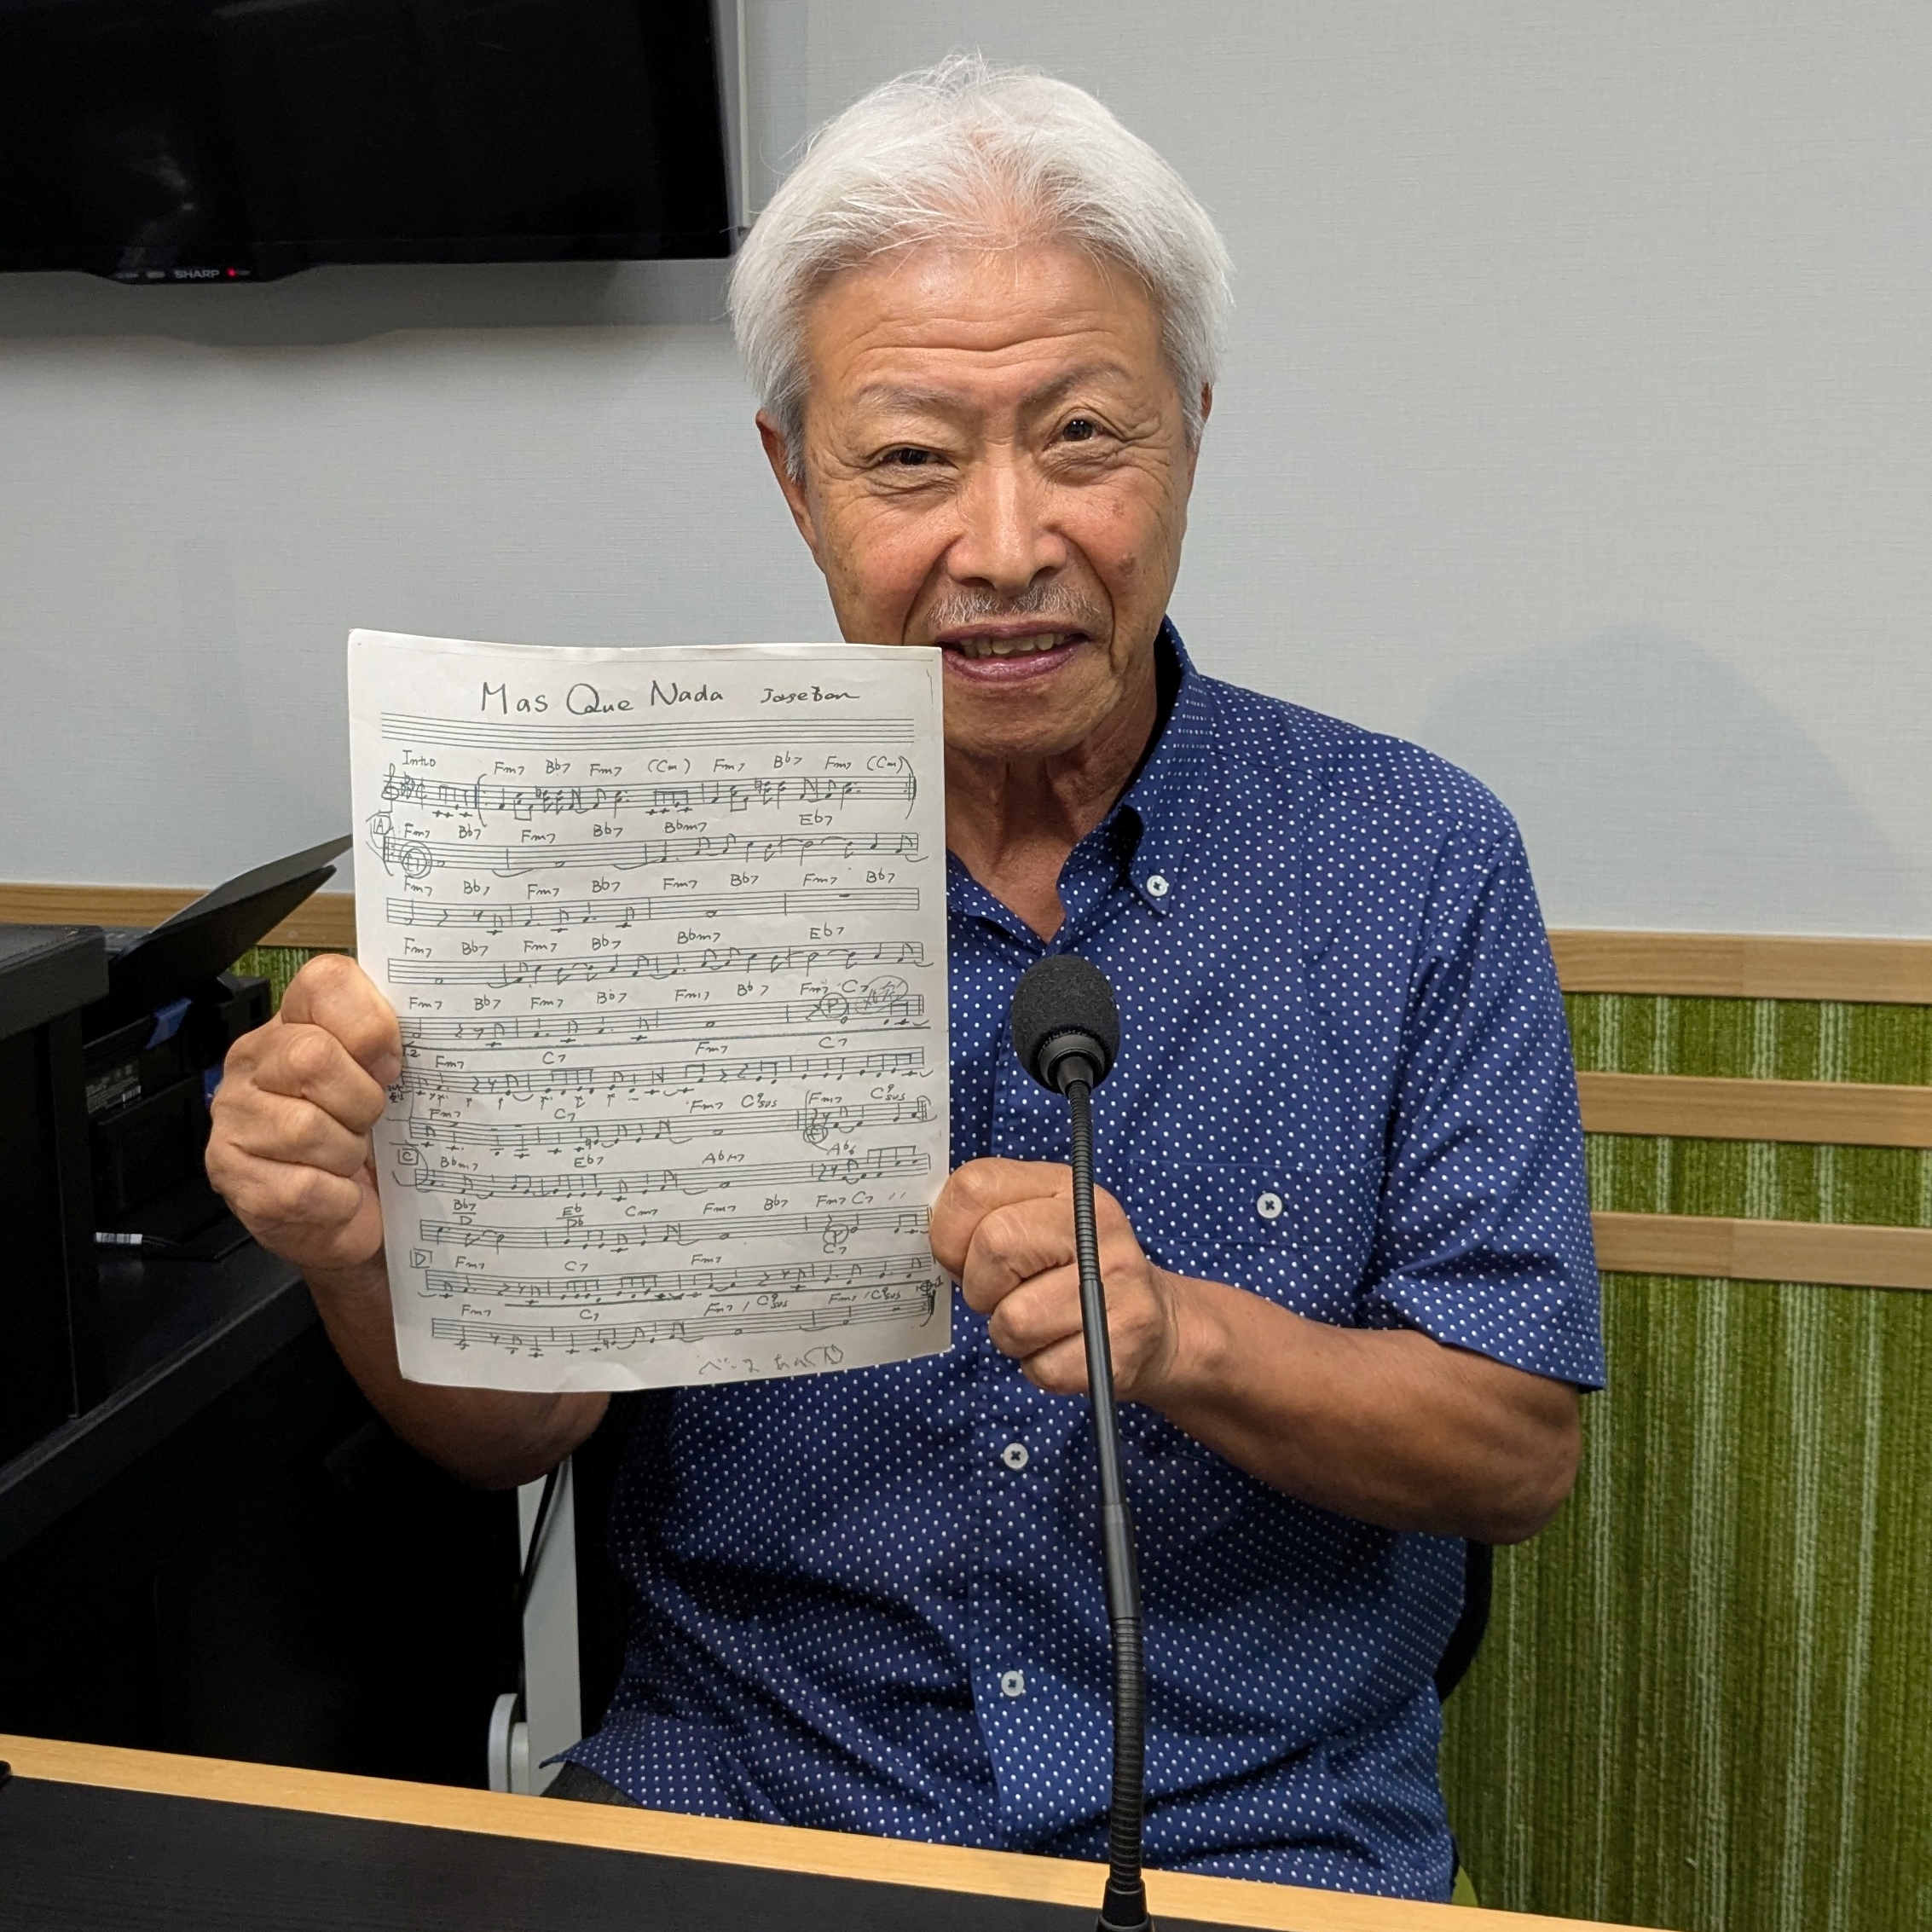 SHARP
Mas Que Nada Jorge Ben
Intro
Fm7 Bb7 Fm7 (Cm) Fm7 Bb7 Fm7 (Cm)
A
Fm7 Bb7 Fm7 Bb7 Bbm7 Eb7
Fm7 Bb7 Fm7 Bb7 Fm7 Bb7 Fm7 Bb7
Fm7 Bb7 Fm7 Bb7 Bbm7 Eb7
Fm7 Bb7 Fm7 Bb7 Fm7 Bb7 Fm7 C7
P
Fm7 C7 Fm7 C7
Fm7 C7 Fm7 C9sus Fm7 C9sus
C
Bbm7 Eb7 AbM7 Ab6
Bb7/D Eb/Db Cm7 Fm7 Bb7 Fm7 C7
P
D
Fm7 C7 Fm7 C7
Fm7 C7 Fm7 / C9sus Fm7 / C9sus